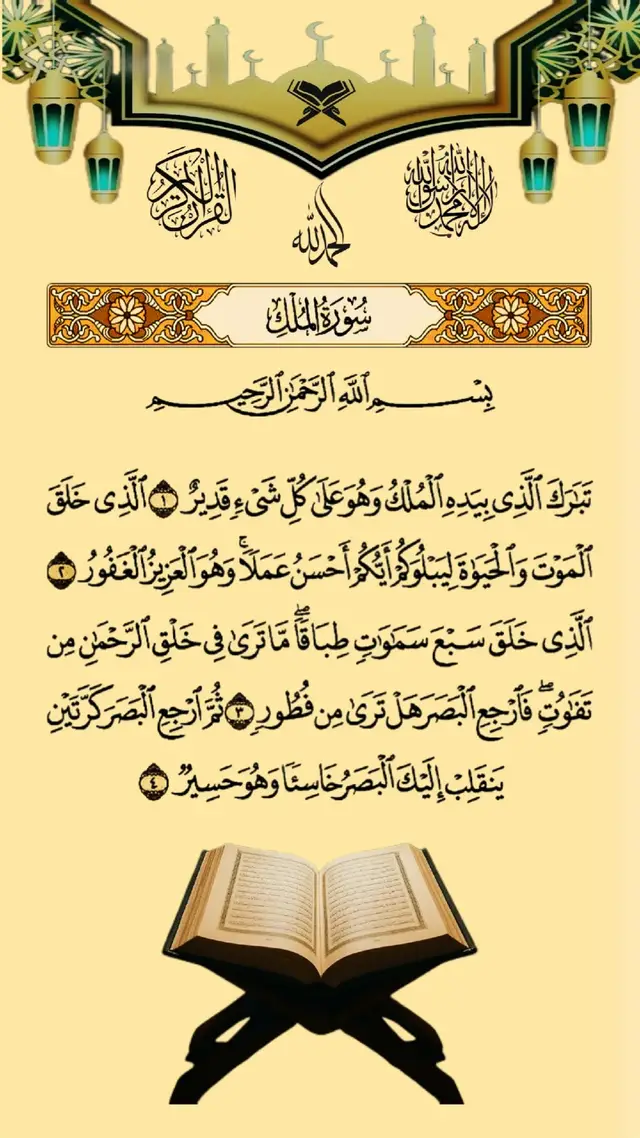 لا إله إلا الله محمد رسول الله
القرآن الكريم
الحمد لله
سُورَةُ المُلْكِ
بِسْمِ ٱللَّهِ ٱلرَّحْمَٰنِ ٱلرَّحِيمِ
تَبَٰرَكَ ٱلَّذِى بِيَدِهِ ٱلْمُلْكُ وَهُوَ عَلَىٰ كُلِّ شَىْءٍ قَدِيرٌ ١ ٱلَّذِى خَلَقَ
ٱلْمَوْتَ وَٱلْحَيَوٰةَ لِيَبْلُوَكُمْ أَيُّكُمْ أَحْسَنُ عَمَلًا ۚ وَهُوَ ٱلْعَزِيزُ ٱلْغَفُورُ ٢
ٱلَّذِى خَلَقَ سَبْعَ سَمَٰوَٰتٍ طِبَاقًا ۖ مَّا تَرَىٰ فِى خَلْقِ ٱلرَّحْمَٰنِ مِن
تَفَٰوُتٍ ۖ فَٱرْجِعِ ٱلْبَصَرَ هَلْ تَرَىٰ مِن فُطُورٍ ٣ ثُمَّ ٱرْجِعِ ٱلْبَصَرَ كَرَّتَيْنِ
يَنقَلِبْ إِلَيْكَ ٱلْبَصَرُ خَاسِئًا وَهُوَ حَسِيرٌ ٤